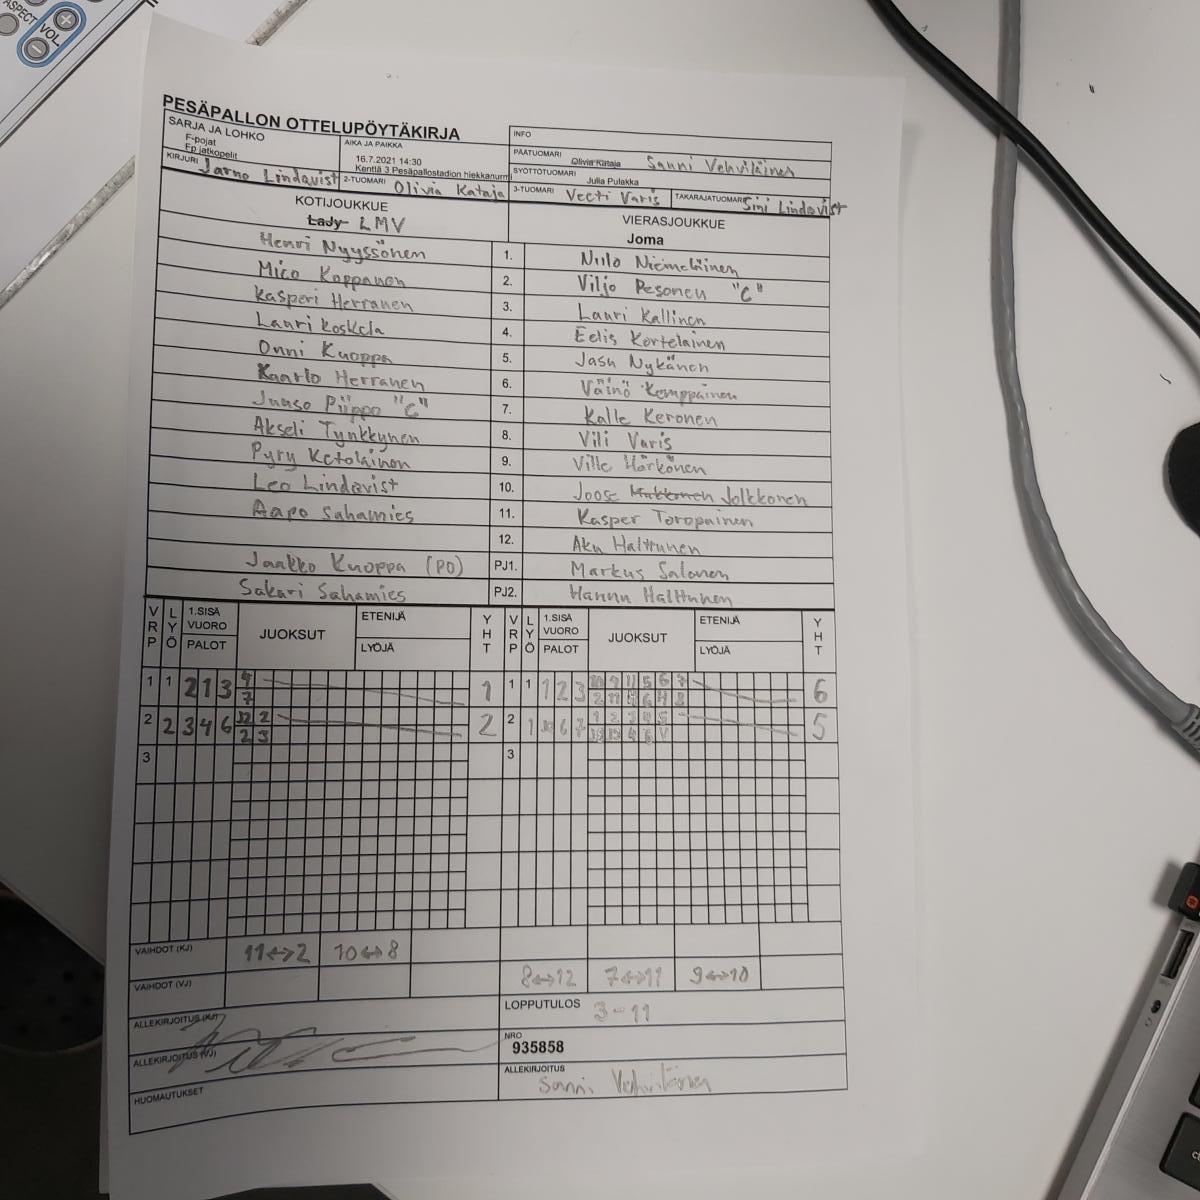 ASPECT
VOL
PESÄPALLON OTTELUPÖYTÄKIRJA
SARJA JA LOHKO
F-pojat
Fp jatkopelit
AIKA JA PAIKKA
16.7.2021 14:30
Kenttä 3 Pesäpallostadion hiekkanurmi
INFO
PÄÄTUOMARI Olivia Kataja Sanni Vehviläinen
SYÖTTÖTUOMARI Julia Pulakka
KIRJURI Jarno Lindqvist 2-TUOMARI Olivia Kataja 3-TUOMARI Veeti Varis TAKARAJATUOMARI Sini Lindqvist
KOTIJOUKKUE
Lady LMV
VIERASJOUKKUE
Joma
Henri Nyyssönen 1. Niilo Niemeläinen
Mico Kopponen 2. Viljo Pesonen "C"
Kasperi Herranen 3. Lauri Kallinen
Lauri Koskela 4. Eelis Kortelainen
Onni Kuoppa 5. Jasu Nykänen
Kaarlo Herranen 6. Väinö Kemppainen
Juuso Piippo "C" 7. Kalle Keronen
Akseli Tynkkynen 8. Vili Varis
Pyry Ketolainen 9. Ville Härkönen
Leo Lindqvist 10. Joose Jolkkonen
Aapo Sahamies 11. Kasper Toropainen
12. Aku Halttunen
Jaakko Kuoppa (PO) PJ1. Markus Salonen
Sakari Sahamies PJ2. Hannu Halttunen
VRP LYÖ 1.SISÄ VUORO PALOT JUOKSUT ETENIJÄ LYÖJÄ YHT VRP LYÖ 1.SISÄ VUORO PALOT JUOKSUT ETENIJÄ LYÖJÄ YHT
1 1 2 1 3 4 1 1 1 1 2 3 10 9 11 5 6 7 6
7 2 11 4 6 4 8
2 2 3 4 6 12 2 2 2 1 10 6 7 1 2 3 4 5 5
2 3
3 3
VAIHDOT (KJ) 11↔2 10↔8
VAIHDOT (VJ) 8↔12 7↔11 9↔10
ALLEKIRJOITUS (KJ)
LOPPUTULOS 3-11
ALLEKIRJOITUS (VJ)
NRO
935858
HUOMAUTUKSET
ALLEKIRJOITUS
Sanni Vehviläinen